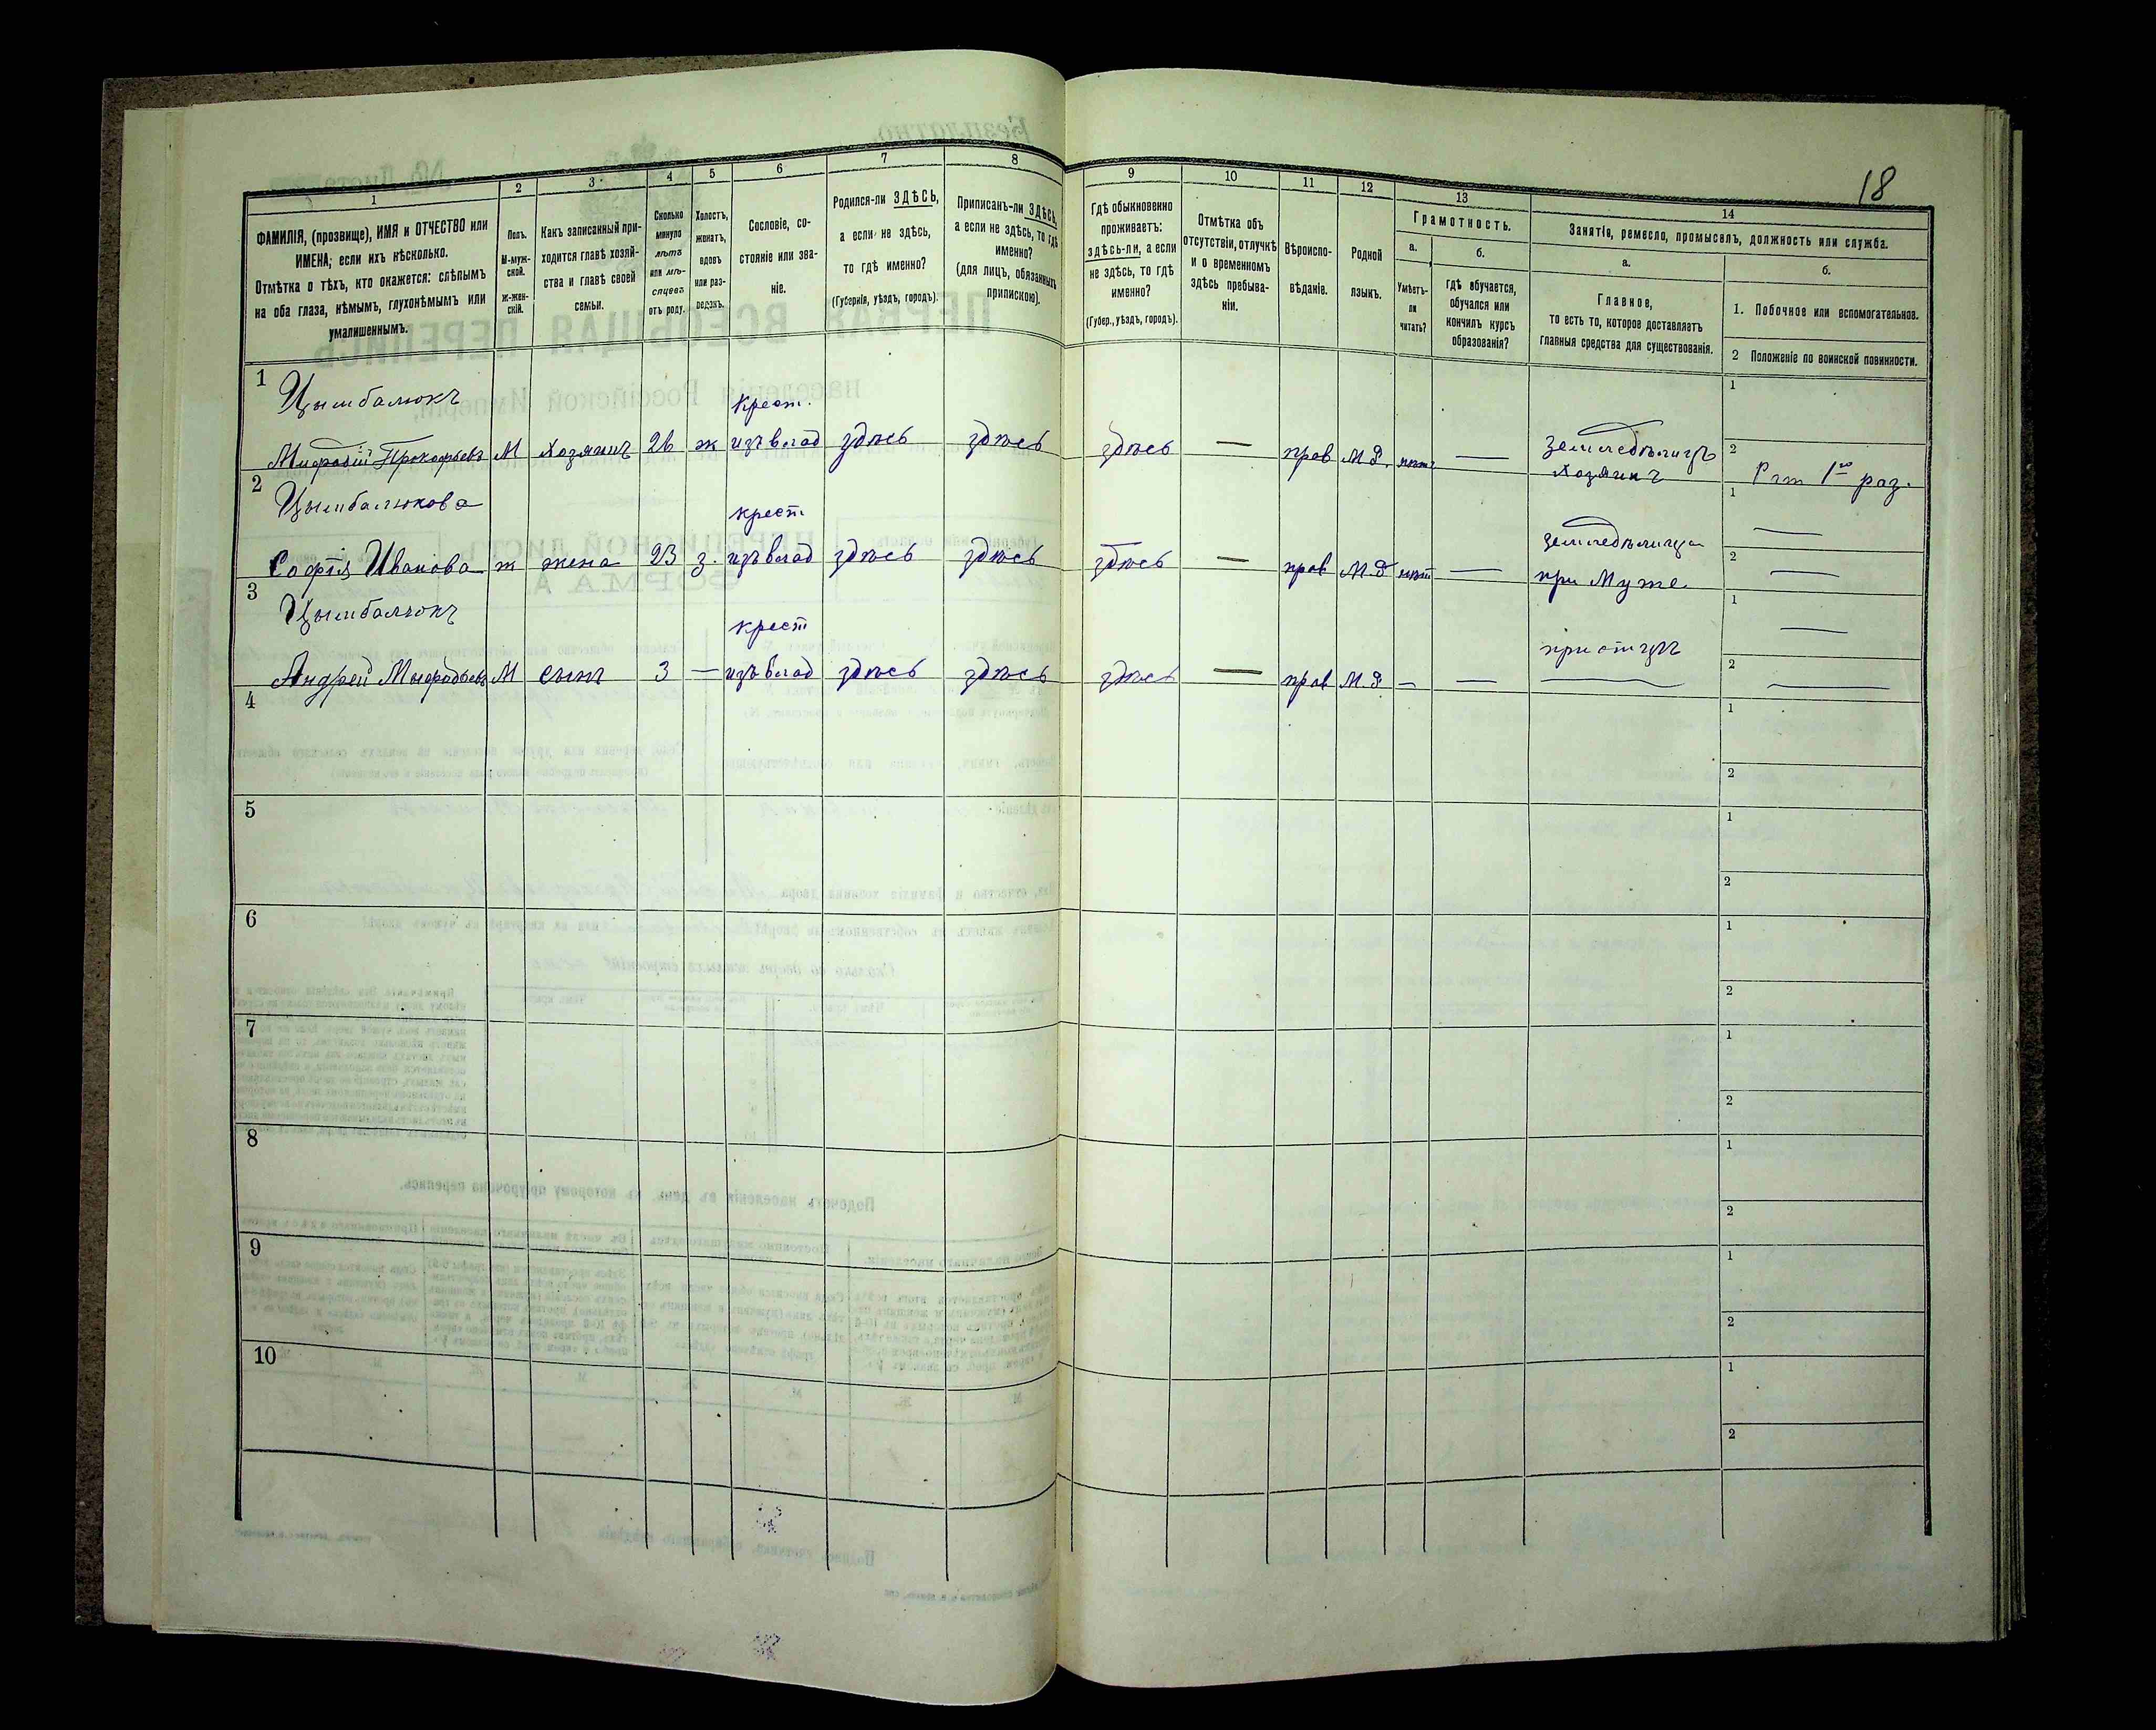 18
1
2
3
4
5
6
7
8
9
10
11
12
13
14
ФАМИЛІЯ, (прозвище), ИМЯ и ОТЧЕСТВО или
ИМЕНА, если ихъ нѣсколько.
Отмѣтка о тѣхъ, кто окажется: слѣпымъ
на оба глаза, нѣмымъ, глухонѣмымъ или
умалишеннымъ.
Полъ.
М-муж-
ской.
Ж-жен-
скій.
Какъ записанный при-
ходится главѣ хозяй-
ства и главѣ своей
семьи.
Сколько
минуло
лѣтъ
или мѣ-
сяцевъ
отъ роду.
Холостъ,
женатъ,
вдовъ
или раз-
веденъ.
Сословіе, со-
стояніе или зва-
ніе.
Родился-ли ЗДѢСЬ,
а если не здѣсь,
то гдѣ именно?
(Губернія, уѣздъ, городъ).
Приписанъ-ли ЗДѢСЬ,
а если не здѣсь, то гдѣ
именно?
(для лицъ, обязанныхъ
припискою).
Гдѣ обыкновенно
проживаетъ:
здѣсь-ли, а если
не здѣсь, то гдѣ
именно?
(Губер., уѣздъ, городъ).
Отмѣтка объ
отсутствіи, отлучкѣ
и о временномъ
здѣсь пребыва-
ніи.
Вѣроиспо-
вѣданіе.
Родной
языкъ.
Грамотность.
а.
Умѣетъ-
ли
читать?
б.
Гдѣ обучается,
обучался или
кончилъ курсъ
образованія?
Занятіе, ремесло, промыселъ, должность или служба.
а.
Главное,
то есть то, которое доставляетъ
главныя средства для существованія.
б.
1. Побочное или вспомогательное.
2 Положеніе по воинской повинности.
1 Цымбалюкъ
Крест. 1
Мифодій Прокофьевъ М Хозяинъ 26 ж изъ влад здѣсь здѣсь здѣсь — прав М.Р. нѣтъ — Земледѣлецъ 2
Хозяинъ Рат 1го раз.
2 Цымбалюкова
крест 1 —
Софія Иванова ж жена 23 з. изъ влад здѣсь здѣсь здѣсь — прав М.Р нѣт — земледѣлица 2 —
при Муже
3 Цымбалюкъ
крест 1 —
Андрей Мифодьевъ М сынъ 3 — изъ влад здѣсь здѣсь здѣсь — прав М.Р — — при отцѣ 2 —
4 1
2
5 1
2
6 1
2
7 1
2
8 1
2
9 1
2
10 1
2